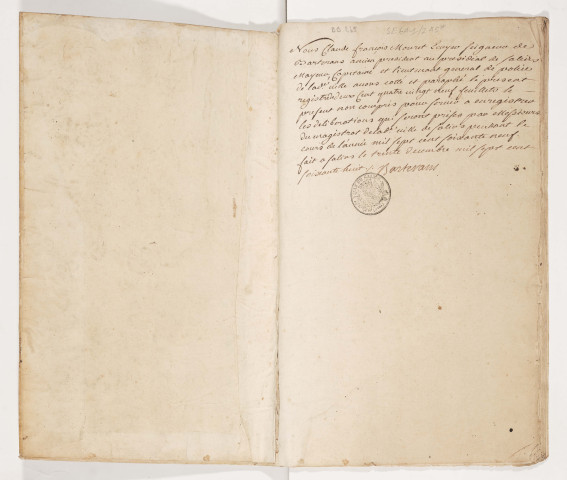 BB
Nous Claude françois Mouret Ecuyer Seigneur de
Barterans ancien president au presidial de Salins
Mayeur, Capitaine et lieutenant general de police
de lad. ville avons cotté et paraphé le present
registre deux Cent quatre vingt deuf feuillets le
present non compris pour servir a enregistrer
les deliberations qui seront prises par Messieurs
du magistrat de lad. ville de Salins pendant le
cours de l'année mil sept cent soixante neuf
fait a salins le trente decembre mil sept cent
soixante huit. Barterans